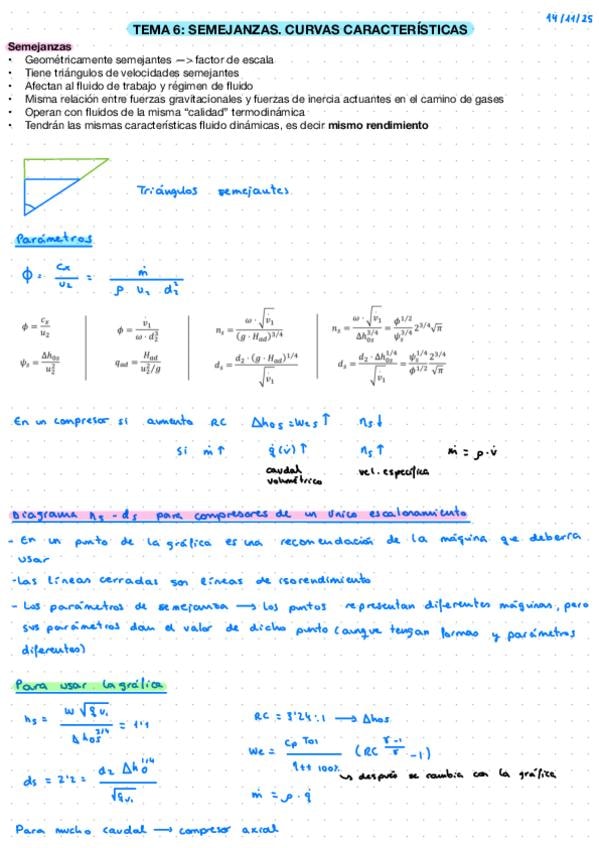 14/11/25
TEMA 6: SEMEJANZAS. CURVAS CARACTERÍSTICAS
Semejanzas
• Geométricamente semejantes —> factor de escala
• Tiene triángulos de velocidades semejantes
• Afectan al fluido de trabajo y régimen de fluido
• Misma relación entre fuerzas gravitacionales y fuerzas de inercia actuantes en el camino de gases
• Operan con fluidos de la misma “calidad” termodinámica
• Tendrán las mismas características fluido dinámicas, es decir mismo rendimiento
Triángulos semejantes
Parámetros
ϕ = cx / u2 = ṁ / ρ · u2 · d2²
ϕ = cx / u2
ϕ = v̇1 / ω · d2³
ns = ω · √v̇1 / (g · Had)^3/4
ns = ω · √v̇1 / Δh0s^3/4 = ϕ^1/2 / ψs^3/4 2^3/4 √π
ψs = Δh0s / u2²
qad = Had / u2²/g
ds = d2 · (g · Had)^1/4 / √v̇1
ds = d2 · Δh0s^1/4 / √v̇1 = ψs^1/4 2^3/4 / ϕ^1/2 √π
En un compresor si aumento RC Δhos = Wes ↑ ns ↓
si ṁ ↑ q̇ (v̇) ↑ ns ↑ ṁ = ρ · v̇
caudal volumétrico vel. específica
Diagrama ns - ds para compresores de un único escalonamiento
- En un punto de la gráfica es una recomendación de la máquina que debería
usar
- Las líneas cerradas son líneas de isorendimiento
- Los parámetros de semejanza → los puntos representan diferentes máquinas, pero
sus parámetros dan el valor de dicho punto (aunque tengan formas y parámetros
diferentes)
Para usar la gráfica
ns = ω √q̇v1 / Δhos^3/4 = 1'1
RC = 3'24:1 → Δhos
We = Cp To1 / ηtt 100% (RC^γ-1/γ - 1)
↳ después se cambia con la gráfica
ds = 2'2 = d2 Δh0^1/4 / √q̇v1
ṁ = ρ · q̇
Para mucho caudal → compresor axial